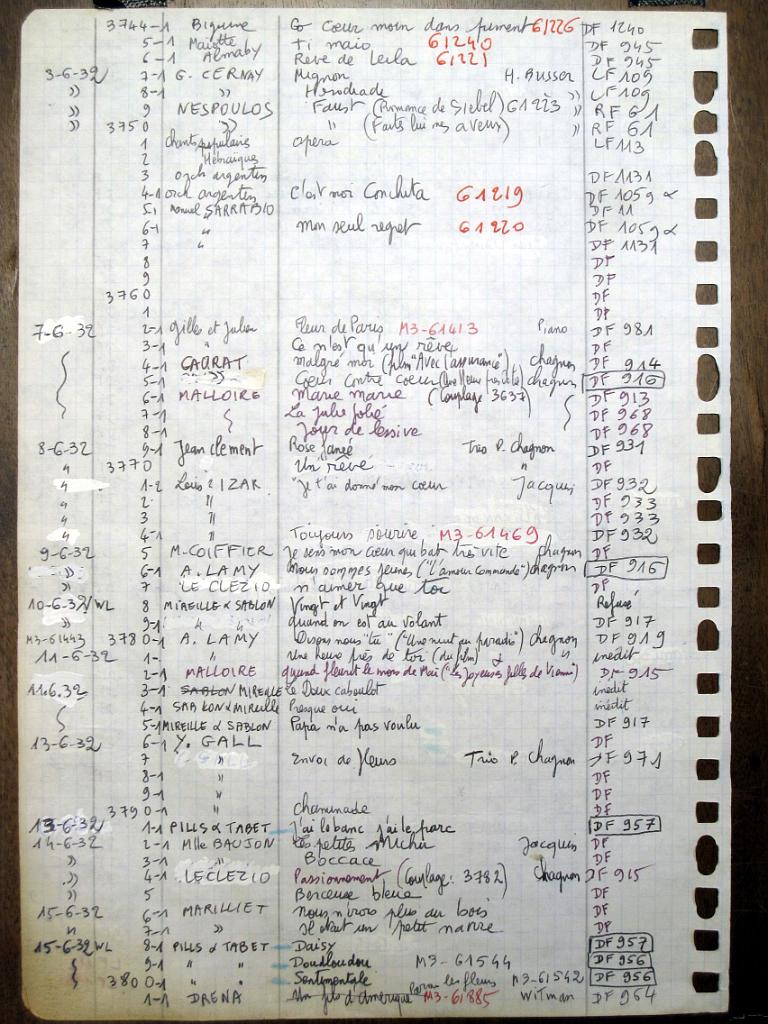 3744-1 Biguine Co coeur moin dans 61226 DF 1240
5-1 Maiotte Ti maio 61240 DF 945
6-1 Almaby Reve de Leila 61221 DF 945
3-6-32 7-1 G. CERNAY Mignon H. Busser LF 109
» 8-1 » Herodiade » LF 109
» 9 NESPOULOS Faust (Romance de Siebel) 61223 » RF 61
» 3750 » " (Faites lui mes aveux) » RF 61
1 chants populaires opera LF 113
2 Hébraïques
3 orch argentin DF 1131
4-1 orch argentin C'est moi Conchita 61219 DF 1059 α
5-1 manuel SARRABIO DF 11
6-1 " mon seul regret 61220 DF 1059 α
7 " DF 1131
8 DF
9 DF
3760 DF
1 DF
7-6-32 2-1 Gilles et Julien Fleur de Paris M3-61413 Piano DF 981
3-1 " Ce n'est qu'un rêve DF
4-1 GARAT malgré moi (film "Avec l'assurance") chagnon DF 914
5-1 » Coeur contre coeur chagnon DF 916
6-1 MALLOIRE Marie marie (Couplage 3637) DF 913
7-1 La Julie jolie DF 968
8-1 Jour de lessive DF 968
8-6-32 9-1 Jean clement Rose fanée Trio P. Chagnon DF 931
" 3770 Un rêve " DF
" 1-2 Louis IZAR "Je t'ai donné mon coeur Jacquin DF 932
" 2 " DF 933
" 3 " DF 933
" 4-1 " Toujours sourire M3-61469 DF 932
9-6-32 5 M. COIFFIER Je sens mon coeur qui bat très vite chagnon DF
» 6-1 A. LAMY Nous sommes jeunes ("L'amour commande") chagnon DF 916
» 7 LE CLEZIO n'aimer que toi DF
10-6-32/WL 8 MIREILLE & SABLON Vingt et Vingt Refusé
9-1 " " quand on est au volant DF 917
M3-61443 3780-1 A. LAMY Disons nous "tu" ("Une nuit au paradis") chagnon DF 919
11-6-32 1- " Une heure près de toi (du film) " inédit
2-1 MALLOIRE quand fleurit le mois de Mai ("Les Joyeuses filles de Vienne") DF 915
11.6.32 3-1 SABLON MIREILLE Le Doux caboulot inédit
4-1 SABLON & MIREILLE Presque oui inédit
5-1 MIREILLE & SABLON Papa n'a pas voulu DF 917
13-6-32 6-1 Y. GALL DF
7 » Envoi de fleurs Trio P. Chagnon DF 971
8-1 » DF
9-1 » DF
3790-1 " Chaminade DF
13-6-32 1-1 PILLS & TABET J'ai le banc j'ai le parc DF 957
14-6-32 2-1 Mlle BAUJON Les petites Michu Jacquin DF
» 3-1 » Boccace DF
» 4-1 LECLEZIO Passionnement (Couplage: 3782) Chagnon DF 915
» 5 Berceuse bleue DF
15-6-32 6-1 MARILLIET nous n'irons plus au bois DF
" 7-1 » Il était un petit navire DF
15-6-32 WL 8-1 PILLS & TABET Daisy DF 957
9-1 " " Doudloudou M3-61544 DF 956
3800-1 " " Sentimentale M3-61542 DF 956
1-1 DRENA Parmi les fleurs Un fils d'Amerique M3-61885 Witman DF 954